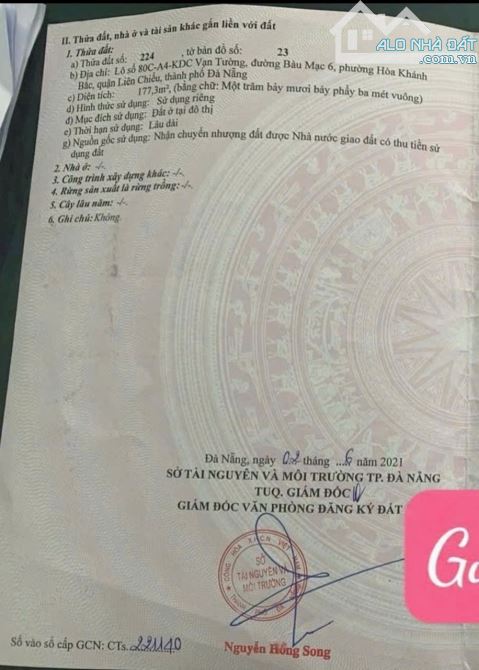 ALO NHÀ ĐẤT
.com.vn
II. Thửa đất, nhà ở và tài sản khác gắn liền với đất
1. Thửa đất:
a) Thửa đất số: 224 , tờ bản đồ số: 23
b) Địa chỉ: Lô số 80C-A4-KDC Vạn Tường, đường Bàu Mạc 6, phường Hòa Khánh
Bắc, quận Liên Chiểu, thành phố Đà Nẵng
c) Diện tích: 177,3m², (bằng chữ: Một trăm bảy mươi bảy phẩy ba mét vuông)
d) Hình thức sử dụng: Sử dụng riêng
đ) Mục đích sử dụng: Đất ở tại đô thị
e) Thời hạn sử dụng: Lâu dài
g) Nguồn gốc sử dụng: Nhận chuyển nhượng đất được Nhà nước giao đất có thu tiền sử
dụng đất
2. Nhà ở: -/-
3. Công trình xây dựng khác: -/-
4. Rừng sản xuất là rừng trồng: -/-
5. Cây lâu năm: -/-
6. Ghi chú: Không.
Đà Nẵng, ngày 02 tháng ...6 năm 2021
SỞ TÀI NGUYÊN VÀ MÔI TRƯỜNG TP. ĐÀ NẴNG
TUQ. GIÁM ĐỐC
GIÁM ĐỐC VĂN PHÒNG ĐĂNG KÝ ĐẤT
SỞ
TÀI NGUYÊN VÀ
MÔI TRƯỜNG
Nguyễn Hồng Song
Số vào sổ cấp GCN: CTs. 221140